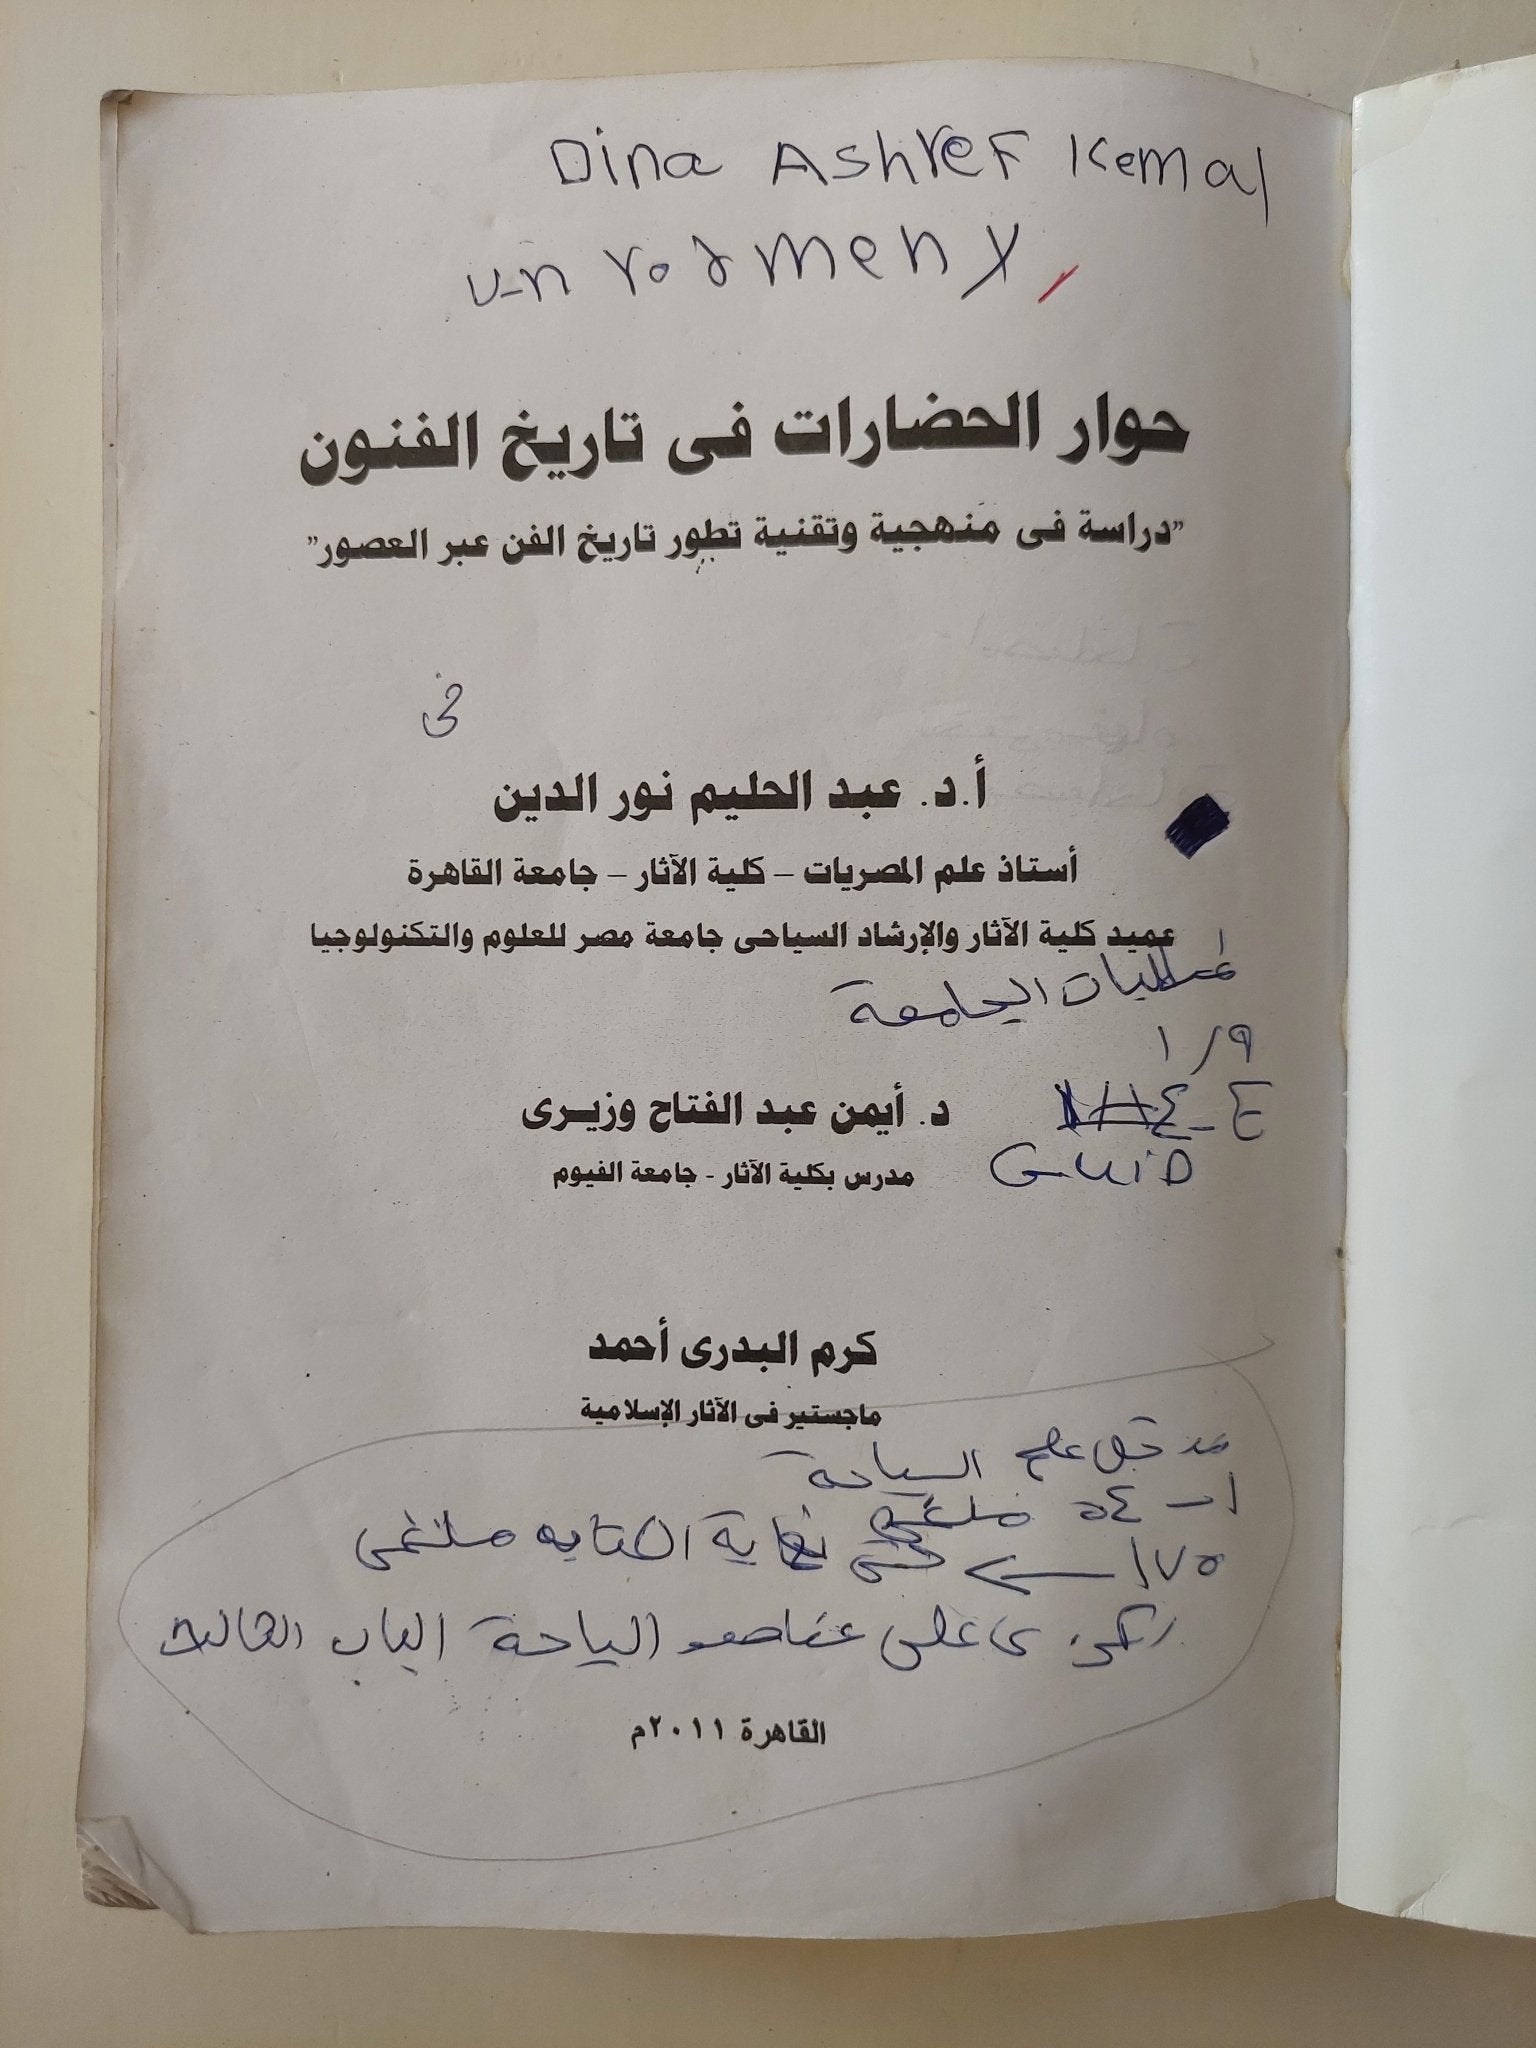 Dina Ashref Kemal
حوار الحضارات فى تاريخ الفنون
"دراسة فى منهجية وتقنية تطور تاريخ الفن عبر العصور"
فى
أ.د. عبد الحليم نور الدين
أستاذ علم المصريات – كلية الآثار – جامعة القاهرة
عميد كلية الآثار والإرشاد السياحى جامعة مصر للعلوم والتكنولوجيا
الجامعة
١/٩
د. أيمن عبد الفتاح وزيرى
مدرس بكلية الآثار - جامعة الفيوم
GUiD
كرم البدرى أحمد
ماجستير فى الآثار الإسلامية
مدخل علم السياحة
١ - ٥٤ ملغى
١٧٥ حتى نهاية الكتاب ملغى
على عناصر الياحة الباب الثالث
القاهرة ٢٠١١م